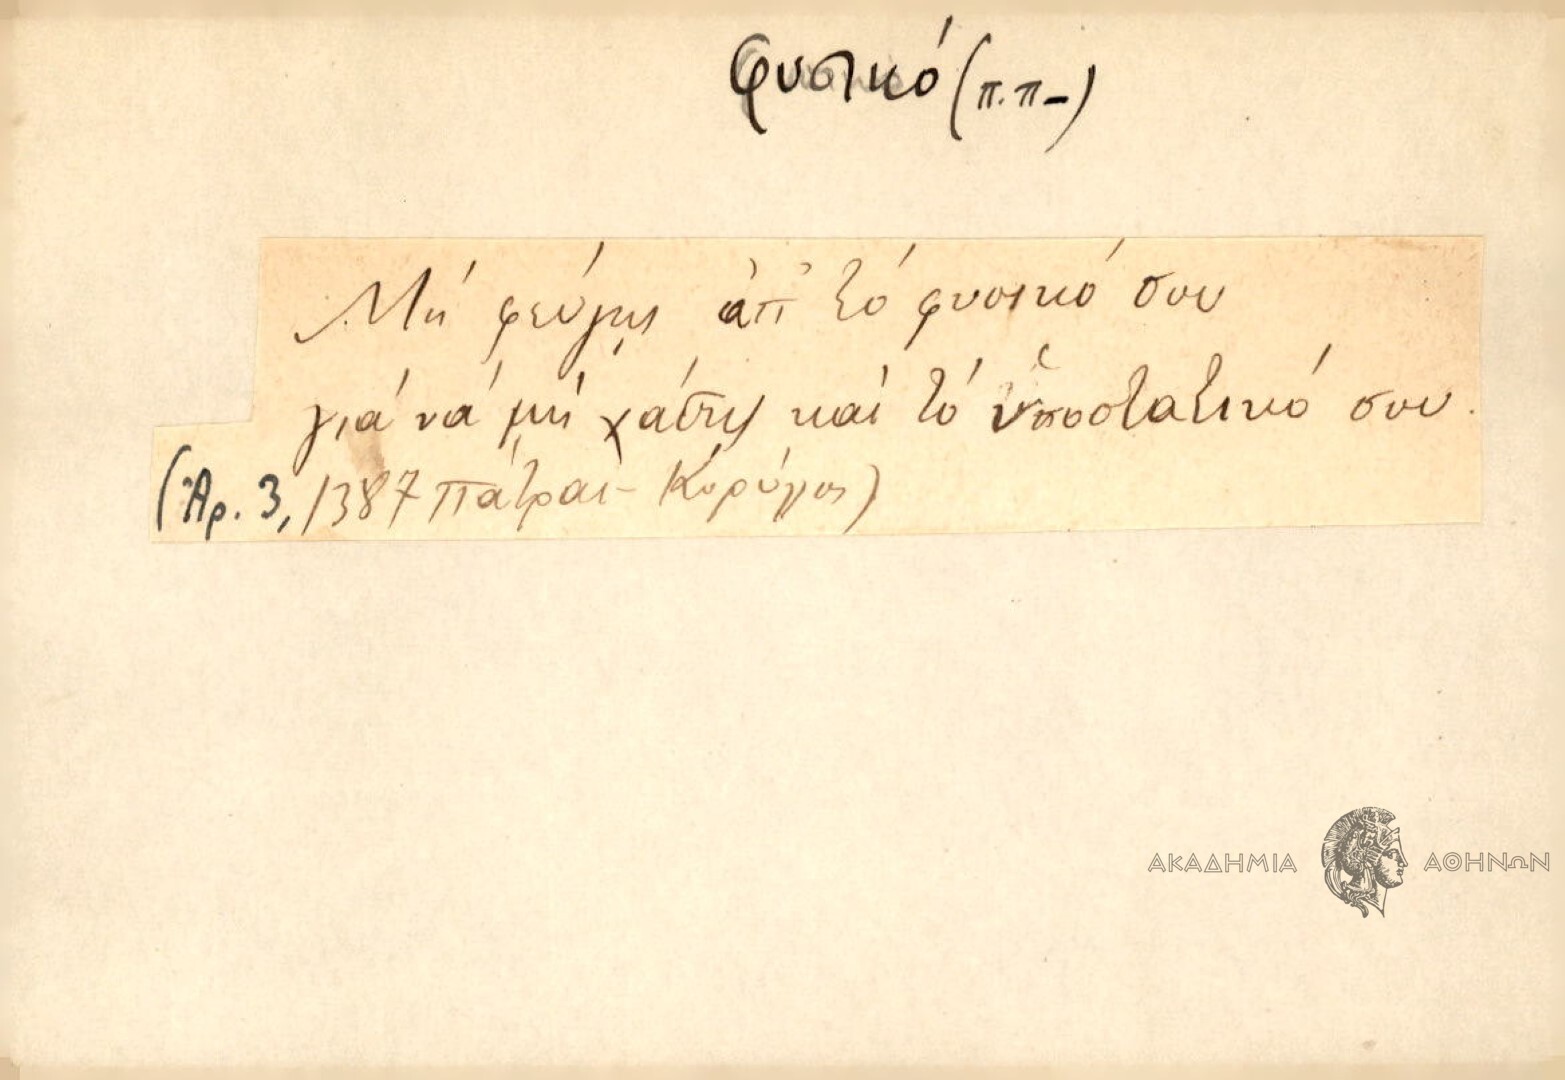 φυσικό (π.π–)
Μή φεύγῃς ἀπ' τό φυσικό σου
γιά νά μή χάσῃς καί τό ὑποστατικό σου.
(Ἀρ. 3, 1387 Πάτραι–
ΑΚΑΔΗΜΙΑ ΑΘΗΝΩΝ